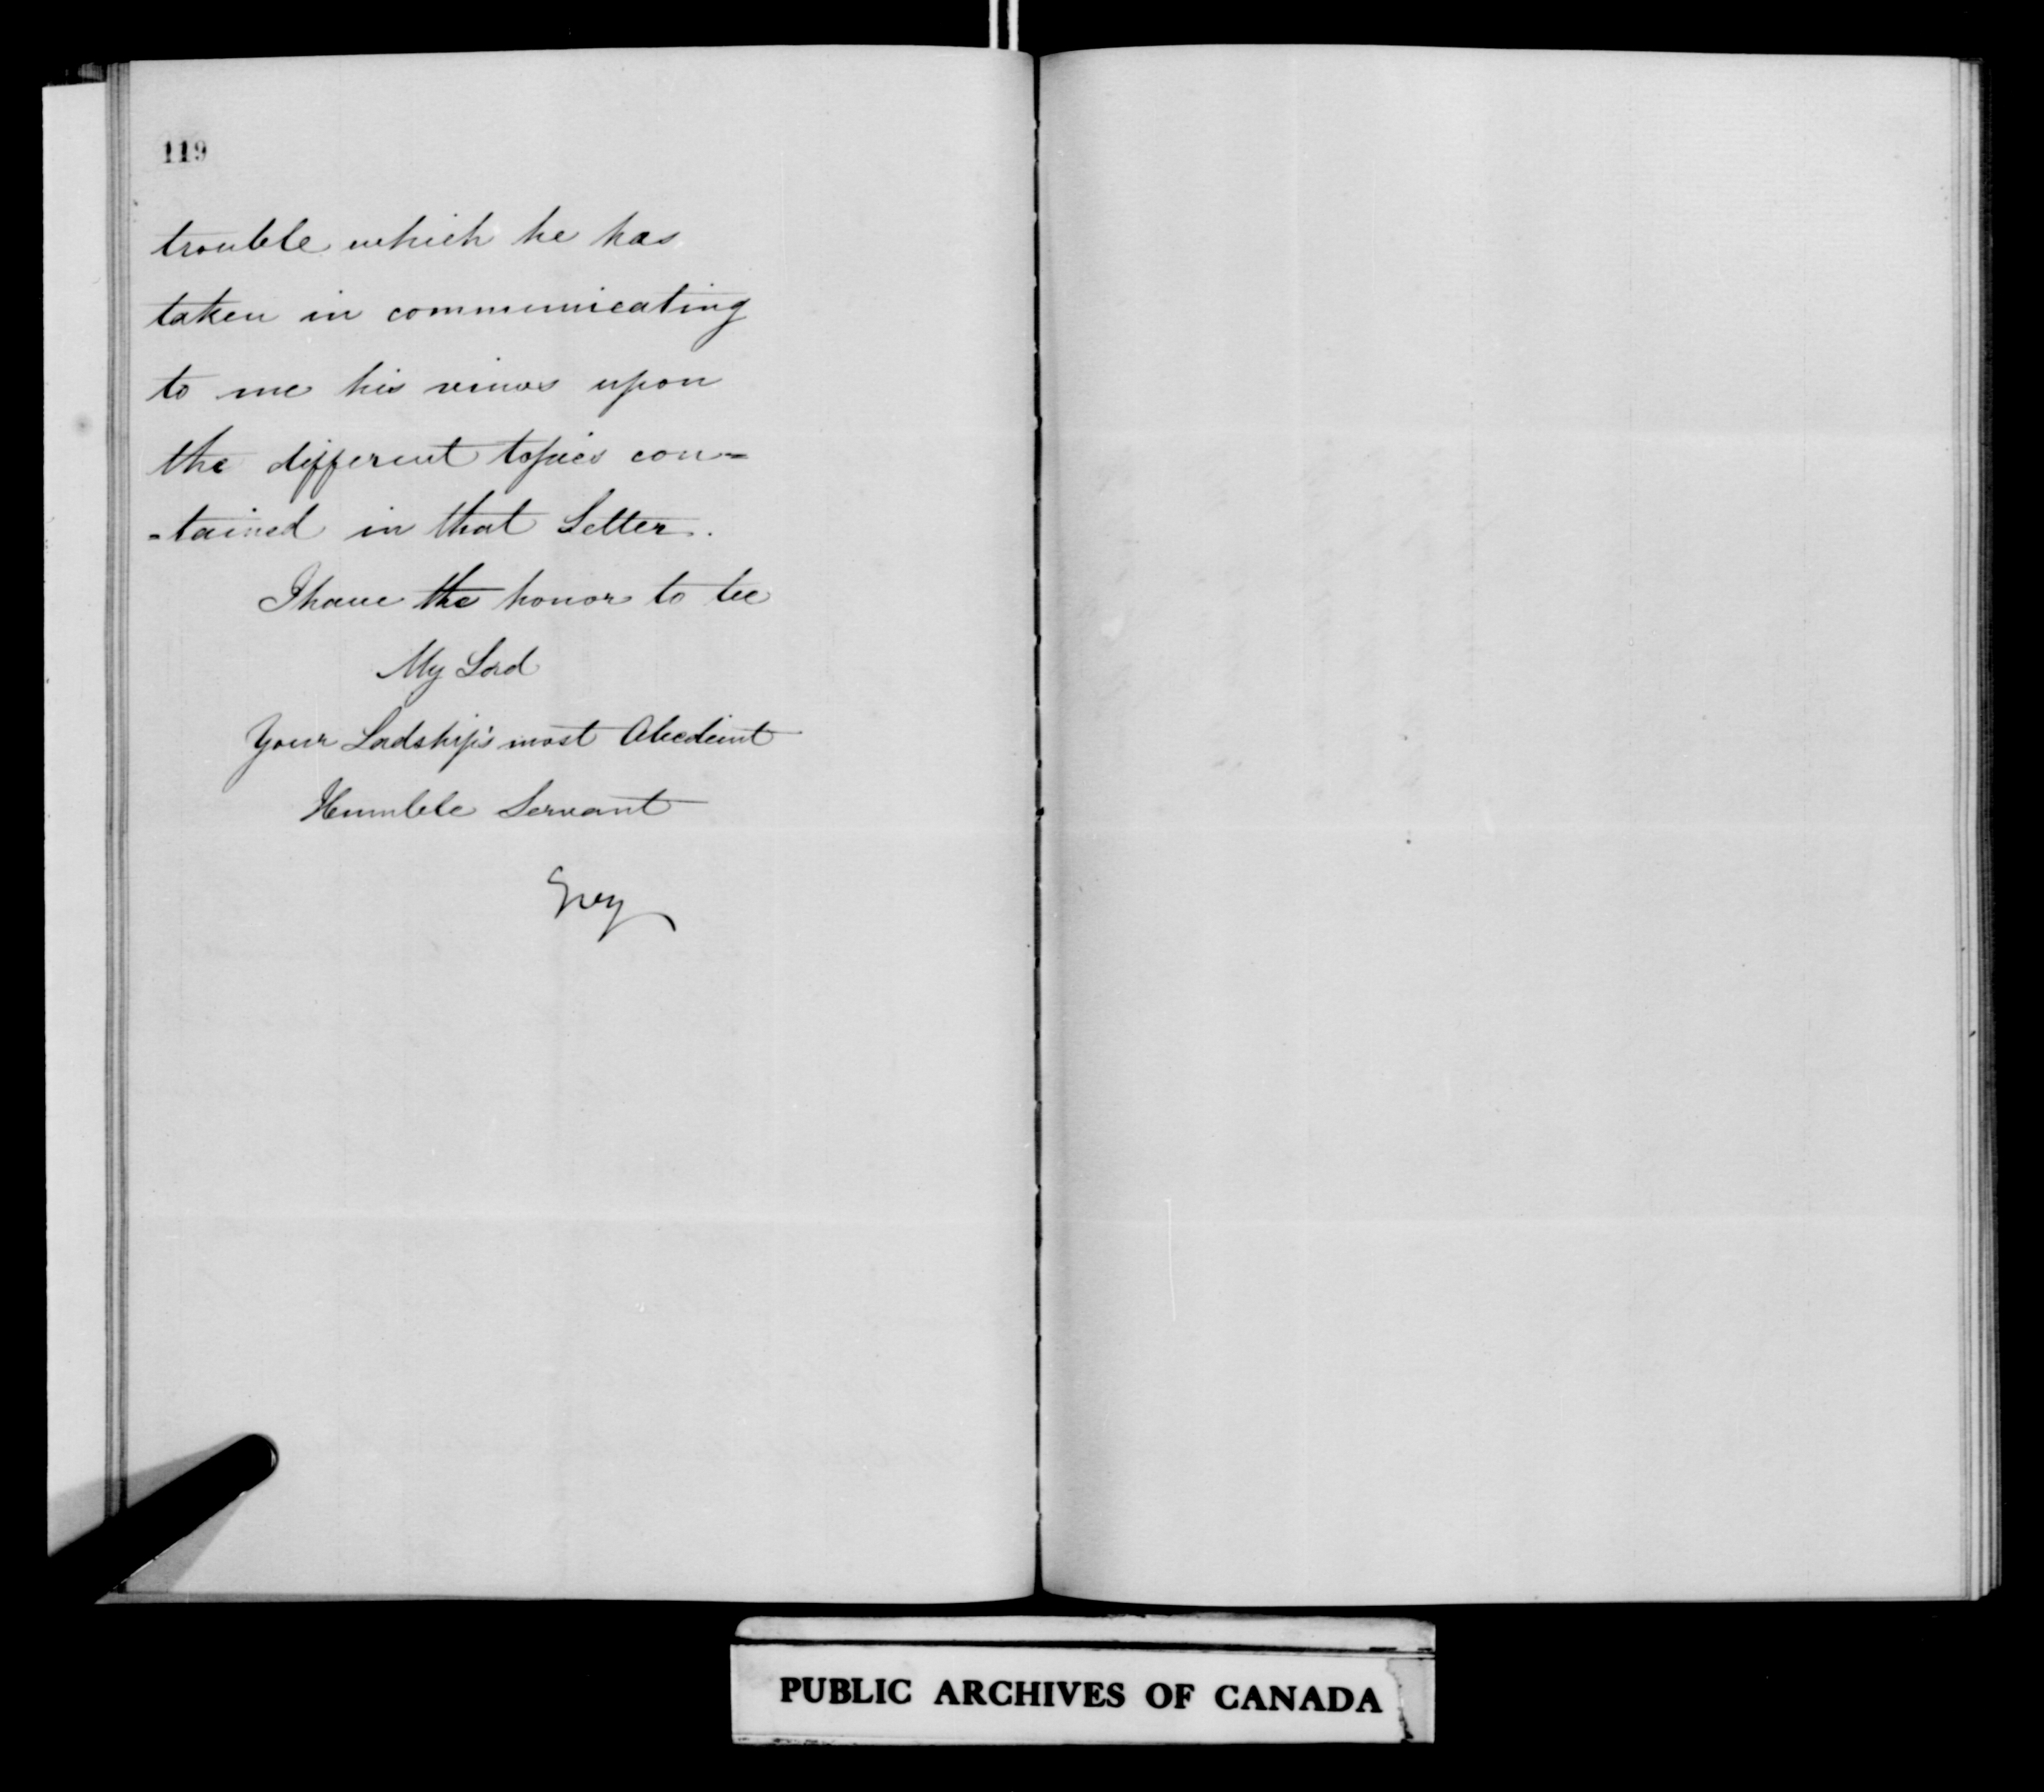 119
trouble which he has
taken in communicating
to me his views upon
the different topics con=
=tained in that Letter.
I have the honor to be
My Lord
Your Lordship's most Obedient
Humble Servant
Grey
PUBLIC ARCHIVES OF CANADA